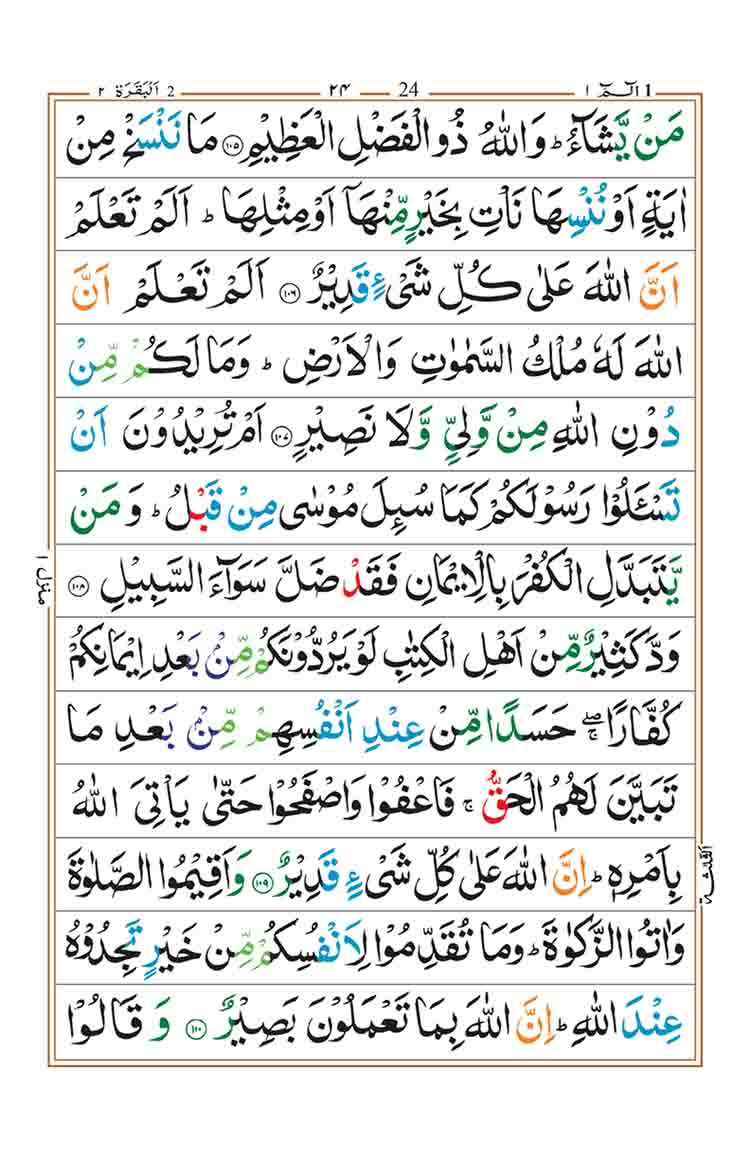 1 الٓـمّٓ ١ 24 ٢٤ 2 اَلْبَقَرَة ٢
مَنْ يَّشَآءُ ؕ وَاللّٰهُ ذُو الْفَضْلِ الْعَظِيْمِ ۝۱۰۵ مَا نَنْسَخْ مِنْ
اٰيَةٍ اَوْ نُنْسِهَا نَاْتِ بِخَيْرٍ مِّنْهَاۤ اَوْ مِثْلِهَا ؕ اَلَمْ تَعْلَمْ
اَنَّ اللّٰهَ عَلٰى كُلِّ شَیْءٍ قَدِيْرٌ ۝۱۰۶ اَلَمْ تَعْلَمْ اَنَّ
اللّٰهَ لَهٗ مُلْكُ السَّمٰوٰتِ وَالْاَرْضِ ؕ وَمَا لَكُمْ مِّنْ
دُوْنِ اللّٰهِ مِنْ وَّلِیٍّ وَّلَا نَصِيْرٍ ۝۱۰۷ اَمْ تُرِيْدُوْنَ اَنْ
تَسْـَٔلُوْا رَسُوْلَكُمْ كَمَا سُىِٕلَ مُوْسٰى مِنْ قَبْلُ ؕ وَمَنْ
يَّتَبَدَّلِ الْكُفْرَ بِالْاِيْمَانِ فَقَدْ ضَلَّ سَوَآءَ السَّبِيْلِ ۝۱۰۸
وَدَّ كَثِيْرٌ مِّنْ اَهْلِ الْكِتٰبِ لَوْ يَرُدُّوْنَكُمْ مِّنْۢ بَعْدِ اِيْمَانِكُمْ
كُفَّارًا ۖۚ حَسَدًا مِّنْ عِنْدِ اَنْفُسِهِمْ مِّنْۢ بَعْدِ مَا
تَبَيَّنَ لَهُمُ الْحَقُّ ۚ فَاعْفُوْا وَاصْفَحُوْا حَتّٰى يَاْتِیَ اللّٰهُ
بِاَمْرِهٖ ؕ اِنَّ اللّٰهَ عَلٰى كُلِّ شَیْءٍ قَدِيْرٌ ۝۱۰۹ وَاَقِيْمُوا الصَّلٰوةَ
وَاٰتُوا الزَّكٰوةَ ؕ وَمَا تُقَدِّمُوْا لِاَنْفُسِكُمْ مِّنْ خَيْرٍ تَجِدُوْهُ
عِنْدَ اللّٰهِ ؕ اِنَّ اللّٰهَ بِمَا تَعْمَلُوْنَ بَصِيْرٌ ۝۱۱۰ وَقَالُوْا
منزل ١
الثلثة